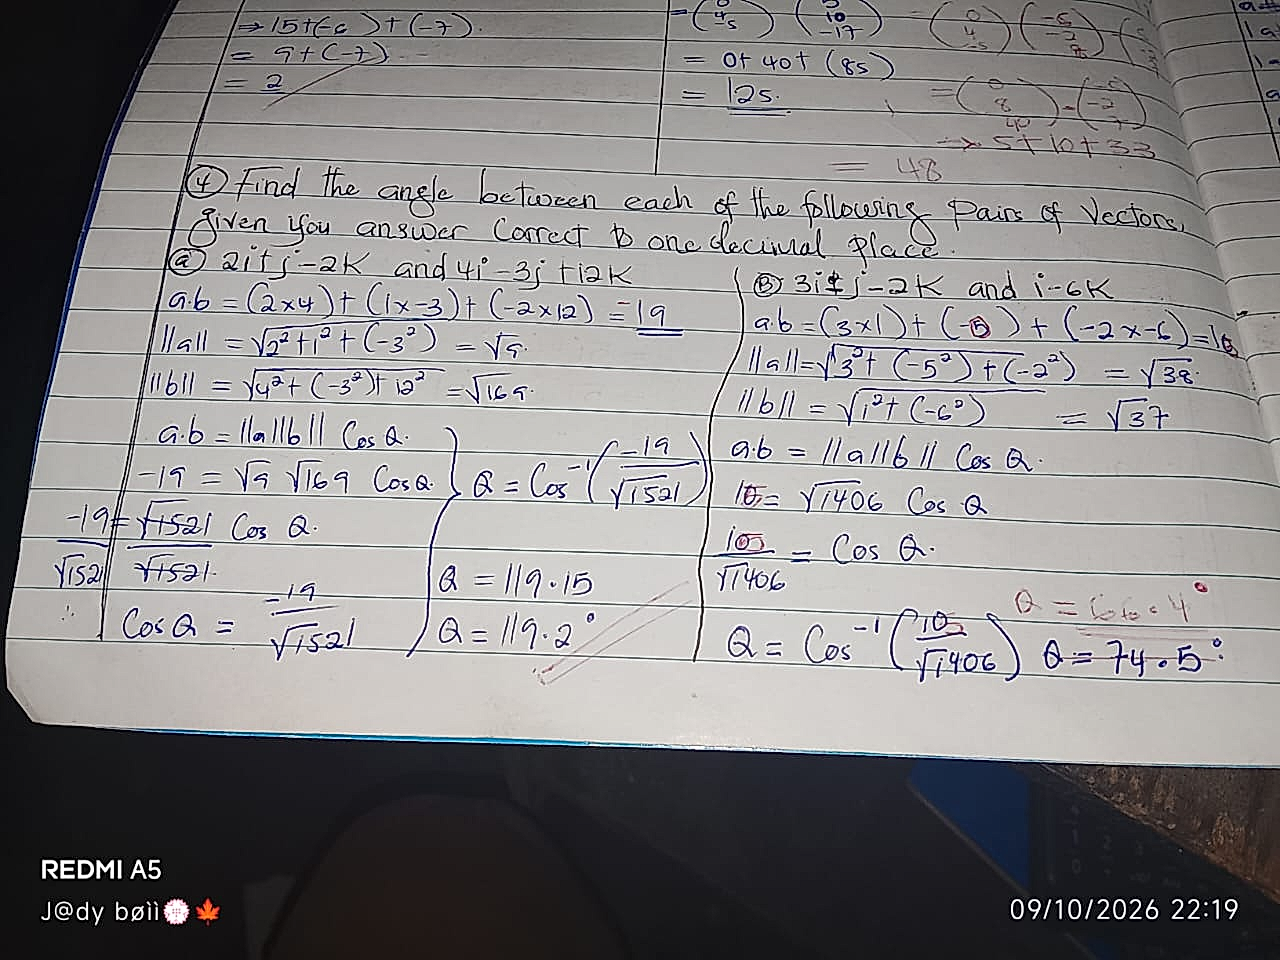 ⇒ 15+(-6) + (-7)
= 9 + (-7)
= 2
= 0+ 40+ (85)
= 125.
→ 5+10+33
= 48
④ Find the angle between each of the following Pairs of Vectors,
given you answer Correct to one decimal place.
ⓐ 2i+j-2K and 4i-3j+12K
a.b = (2x4) + (1x-3) + (-2x12) = -19
||a|| = √2²+1²+(-3²) = √9.
||b|| = √4²+(-3²)+12² = √169.
a.b = ||a||b|| Cos Q.
-19 = √9 √169 Cos Q.
-19 = √1521 Cos Q.
√1521 √1521.
∴ Cos Q = -19
√1521
Q = Cos⁻¹(-19
√1521)
Q = 119.15
Q = 119.2°
Ⓑ 3i j-2K and i-6K
a.b = (3x1) + (-5) + (-2x-6) =
||a|| = √3²+(-5²)+(-2²) = √38.
||b|| = √1²+(-6²) = √37
a.b = ||a||b|| Cos Q.
= √1406 Cos Q
= Cos Q.
√1406
Q = 66.4°
Q = Cos⁻¹(
√1406) Q = 74.5°
REDMI A5
J@dy bøìì💮🍁
09/10/2026 22:19